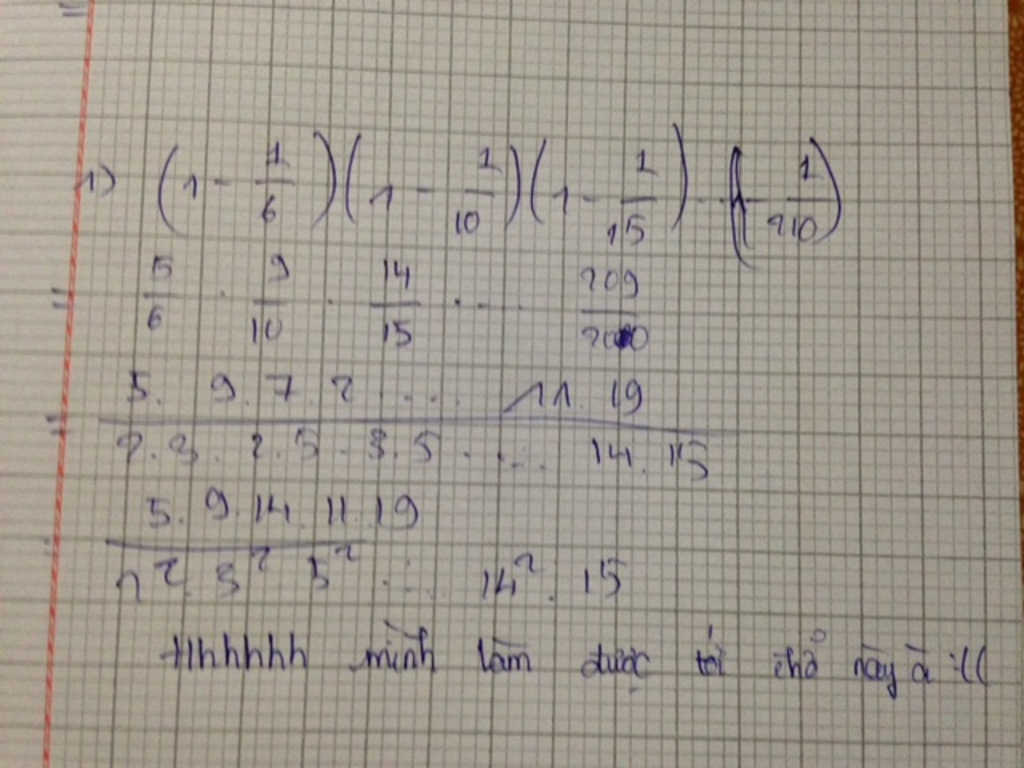 1) (1 - 1/6)(1 - 1/10)(1 - 1/15) ... (1 - 1/210)
= 5/6 . 9/10 . 14/15 . ... 209/210
= 5. 9. 7. 2 .... 11. 19 / 2.3. 2.5. 3.5. .... 14. 15
= 5. 9. 14. 11. 19 / 2². 3². 5² .... 14². 15
Hhhhhh mình làm được tới chỗ này à :((